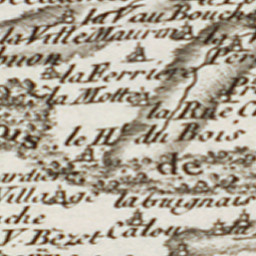 la Vau Bouche
la Ville Maurin
la Ferrier
la Motte
la Rue C
ois
le H du Bois
de
ardier
Village
la Guignais
che
V. Bezet
Calou